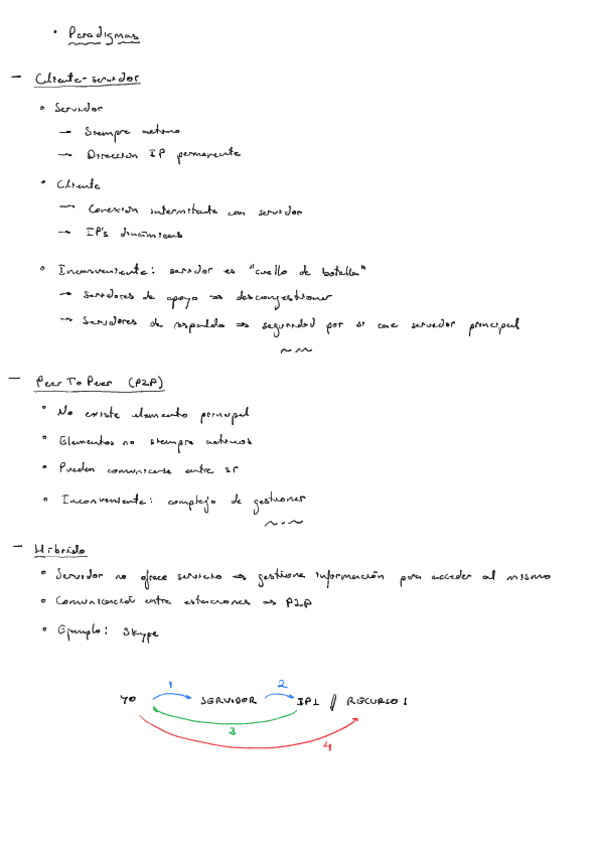 • Paradigmas
- Cliente-servidor
• Servidor
→ Siempre activo
→ Dirección IP permanente
• Cliente
→ Conexión intermitente con servidor
→ IP's dinámicas
• Inconveniente: servidor es "cuello de botella"
→ Servidores de apoyo ⇒ descongestionar
→ Servidores de respaldo ⇒ seguridad por si cae servidor principal
- Peer To Peer (P2P)
• No existe elemento principal
• Elementos no siempre activos
• Pueden comunicarse entre sí
• Inconveniente: complejo de gestionar
- Híbrido
• Servidor no ofrece servicio ⇒ gestiona información para acceder al mismo
• Comunicación entre estaciones ⇒ P2P
• Ejemplo: Skype
1 2
YO SERVIDOR IP1 // RECURSO 1
3
4